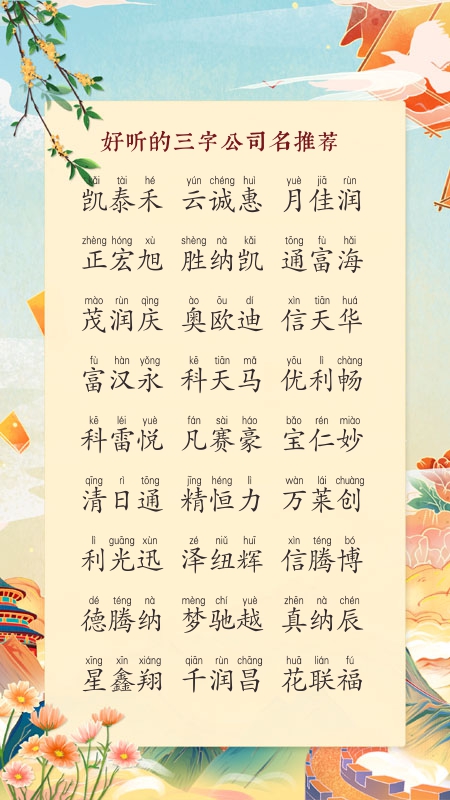 好听的三字公司名推荐
kǎi tài hé yún chéng huì yuè jiā rùn
凯泰禾 云诚惠 月佳润
zhèng hóng xù shèng nà kǎi tōng fù hǎi
正宏旭 胜纳凯 通富海
mào rùn qìng ào ōu dí xìn tiān huá
茂润庆 奥欧迪 信天华
fù hàn yǒng kē tiān mǎ yōu lì chàng
富汉永 科天马 优利畅
kē léi yuè fán sài háo bǎo rén miào
科雷悦 凡赛豪 宝仁妙
qīng rì tōng jīng héng lì wàn lái chuàng
清日通 精恒力 万莱创
lì guāng xùn zé niǔ huī xìn téng bó
利光迅 泽纽辉 信腾博
dé téng nà mèng chí yuè zhēn nà chén
德腾纳 梦驰越 真纳辰
xīng xīn xiáng qiān rùn chāng huā lián fú
星鑫翔 千润昌 花联福